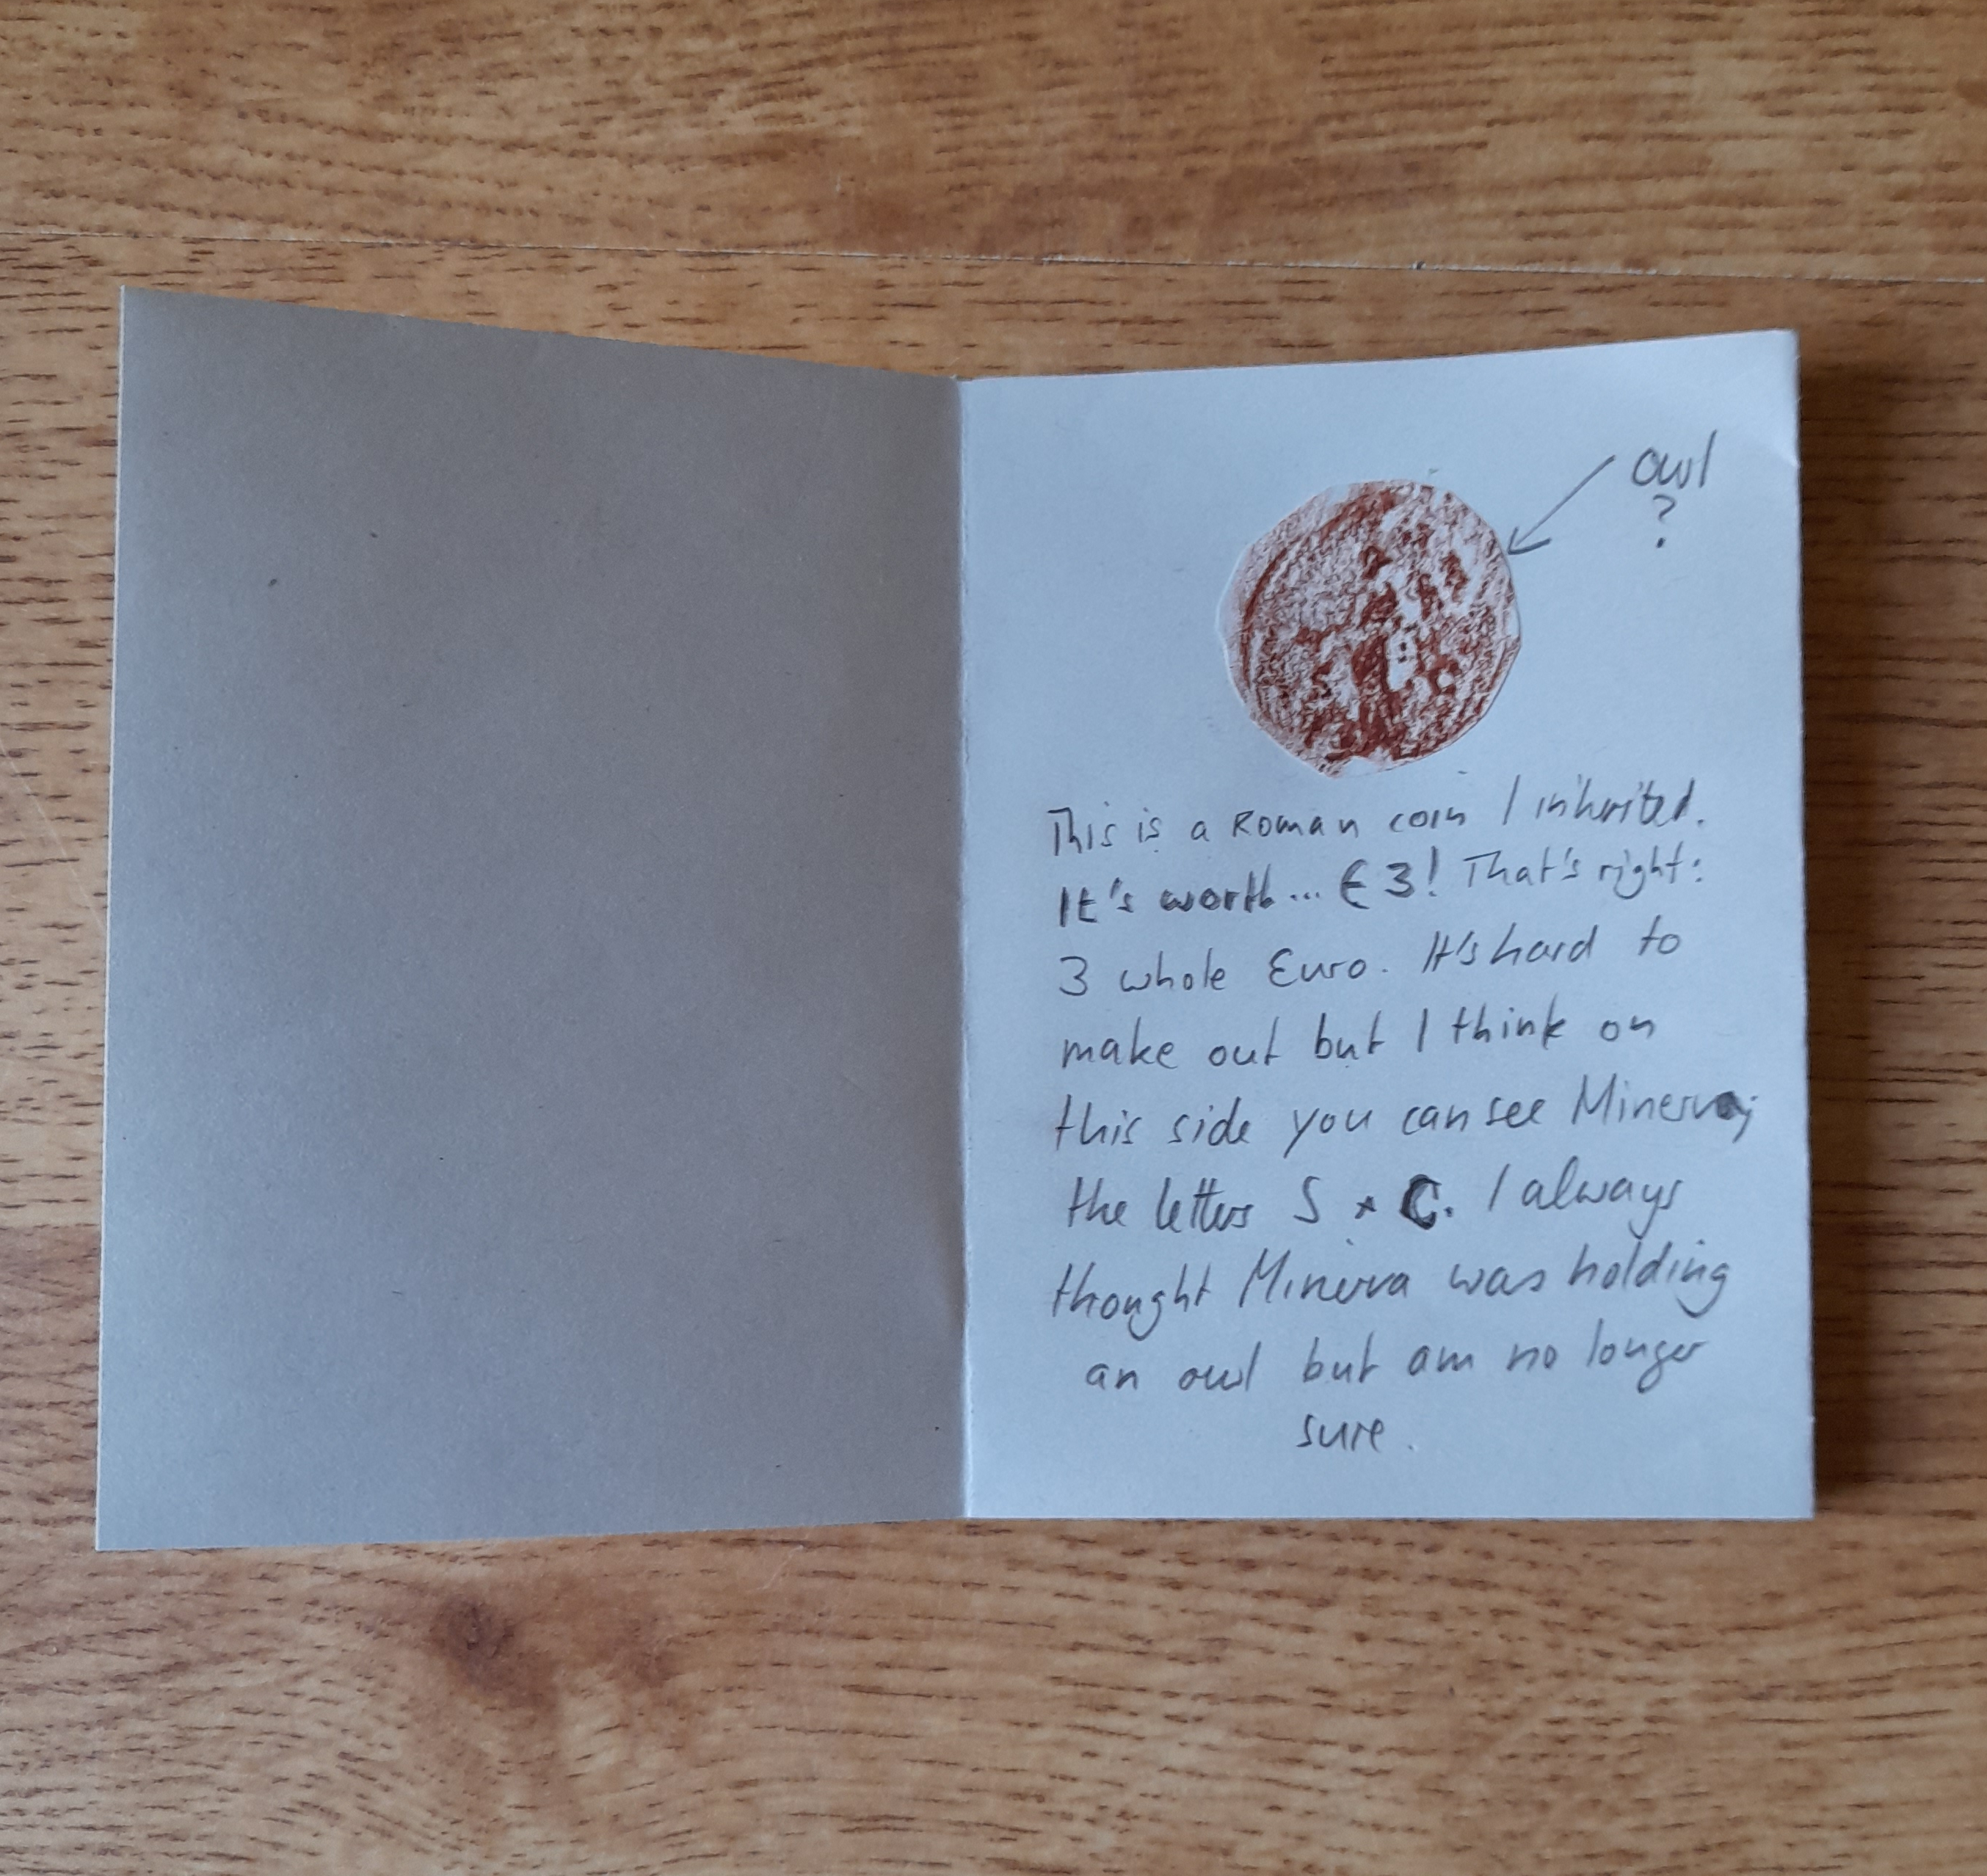 owl
?
This is a Roman coin I inherited.
It's worth... €3! That's right:
3 whole Euro. It's hard to
make out but I think on
this side you can see Minerva;
the letters S + C. I always
thought Minerva was holding
an owl but am no longer
sure.